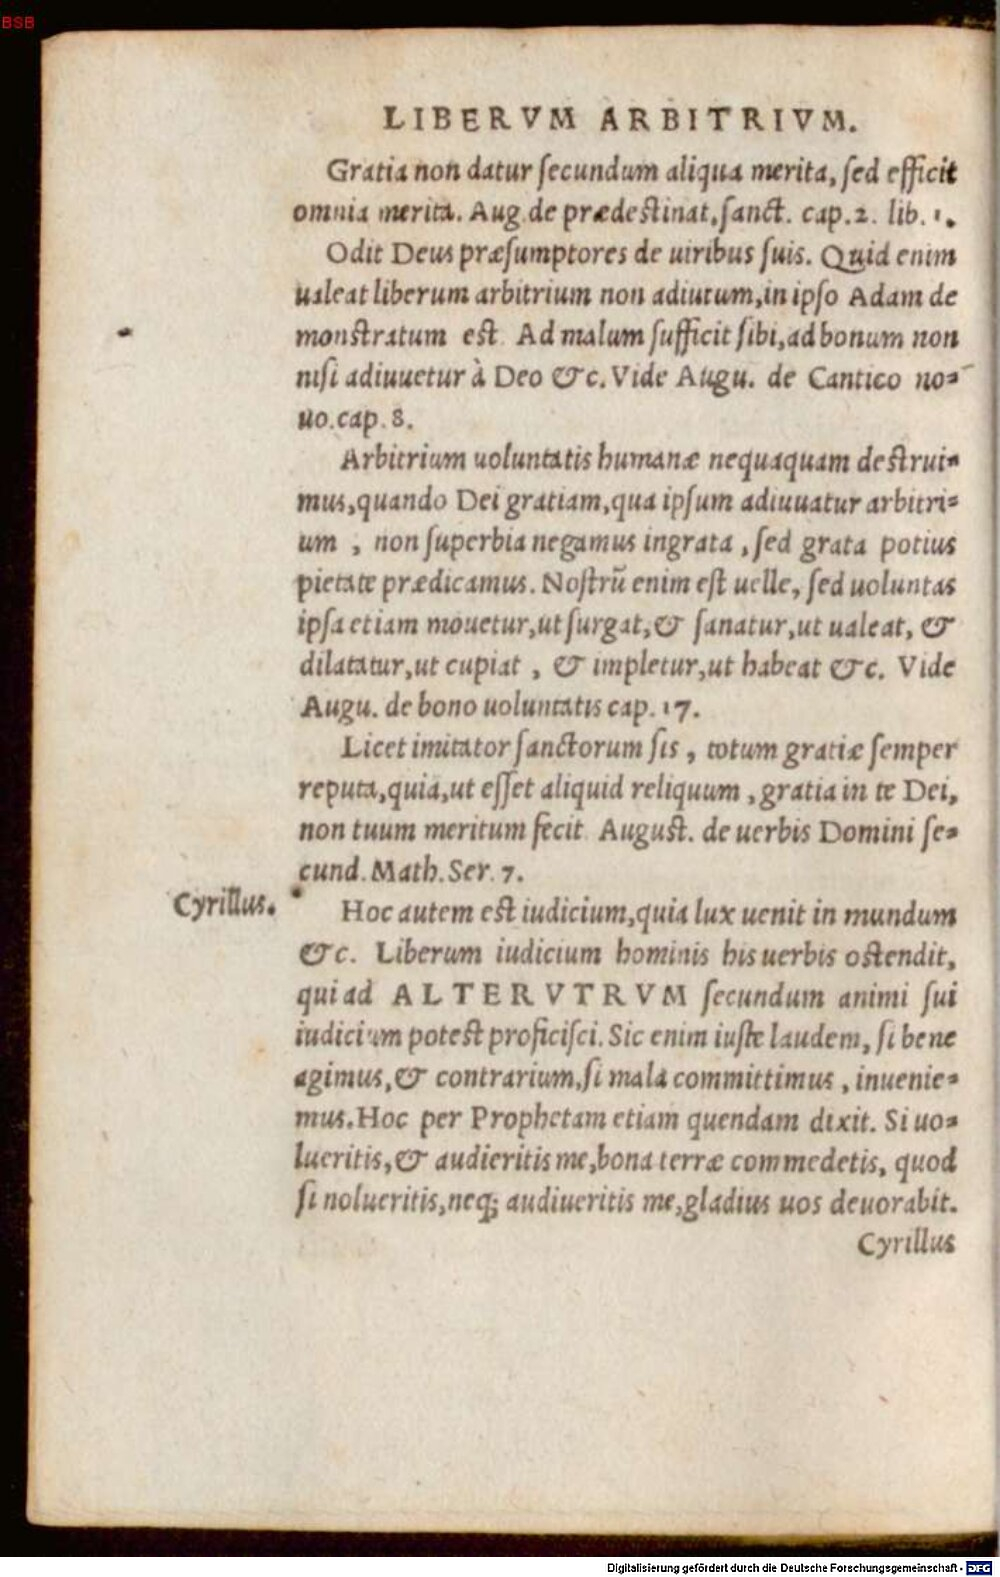 BSB
LIBERVM ARBITRIVM.
Gratia non datur secundum aliqua merita, sed efficit
omnia merita. Aug. de prædestinat. sanct. cap. 2. lib. 1.
Odit Deus præsumptores de uiribus suis. Quid enim
ualeat liberum arbitrium non adiutum, in ipso Adam de
monstratum est. Ad malum sufficit sibi, ad bonum non
nisi adiuuetur à Deo &c. Vide Augu. de Cantico no-
uo. cap. 8.
Arbitrium uoluntatis humanæ nequaquam destrui-
mus, quando Dei gratiam, qua ipsum adiuuatur arbitri-
um , non superbia negamus ingrata , sed grata potius
pietate prædicamus. Nostrũ enim est uelle, sed uoluntas
ipsa etiam mouetur, ut surgat, & sanatur, ut ualeat, &
dilatatur, ut cupiat , & impletur, ut habeat &c. Vide
Augu. de bono uoluntatis cap. 17.
Licet imitator sanctorum sis , totum gratiæ semper
reputa, quia, ut esset aliquid reliquum , gratia in te Dei,
non tuum meritum fecit. August. de uerbis Domini se-
cund. Math. Ser. 7.
Cyrillus.
Hoc autem est iudicium, quia lux uenit in mundum
&c. Liberum iudicium hominis his uerbis ostendit,
qui ad ALTERVTRVM secundum animi sui
iudicium potest proficisci. Sic enim iuste laudem, si bene
agimus, & contrarium, si mala committimus , inuenie-
mus. Hoc per Prophetam etiam quendam dixit. Si uo-
lueritis, & audieritis me, bona terræ commedetis, quod
si nolueritis, neq; audiueritis me, gladius uos deuorabit.
Cyrillus
Digitalisierung gefördert durch die Deutsche Forschungsgemeinschaft - DFG